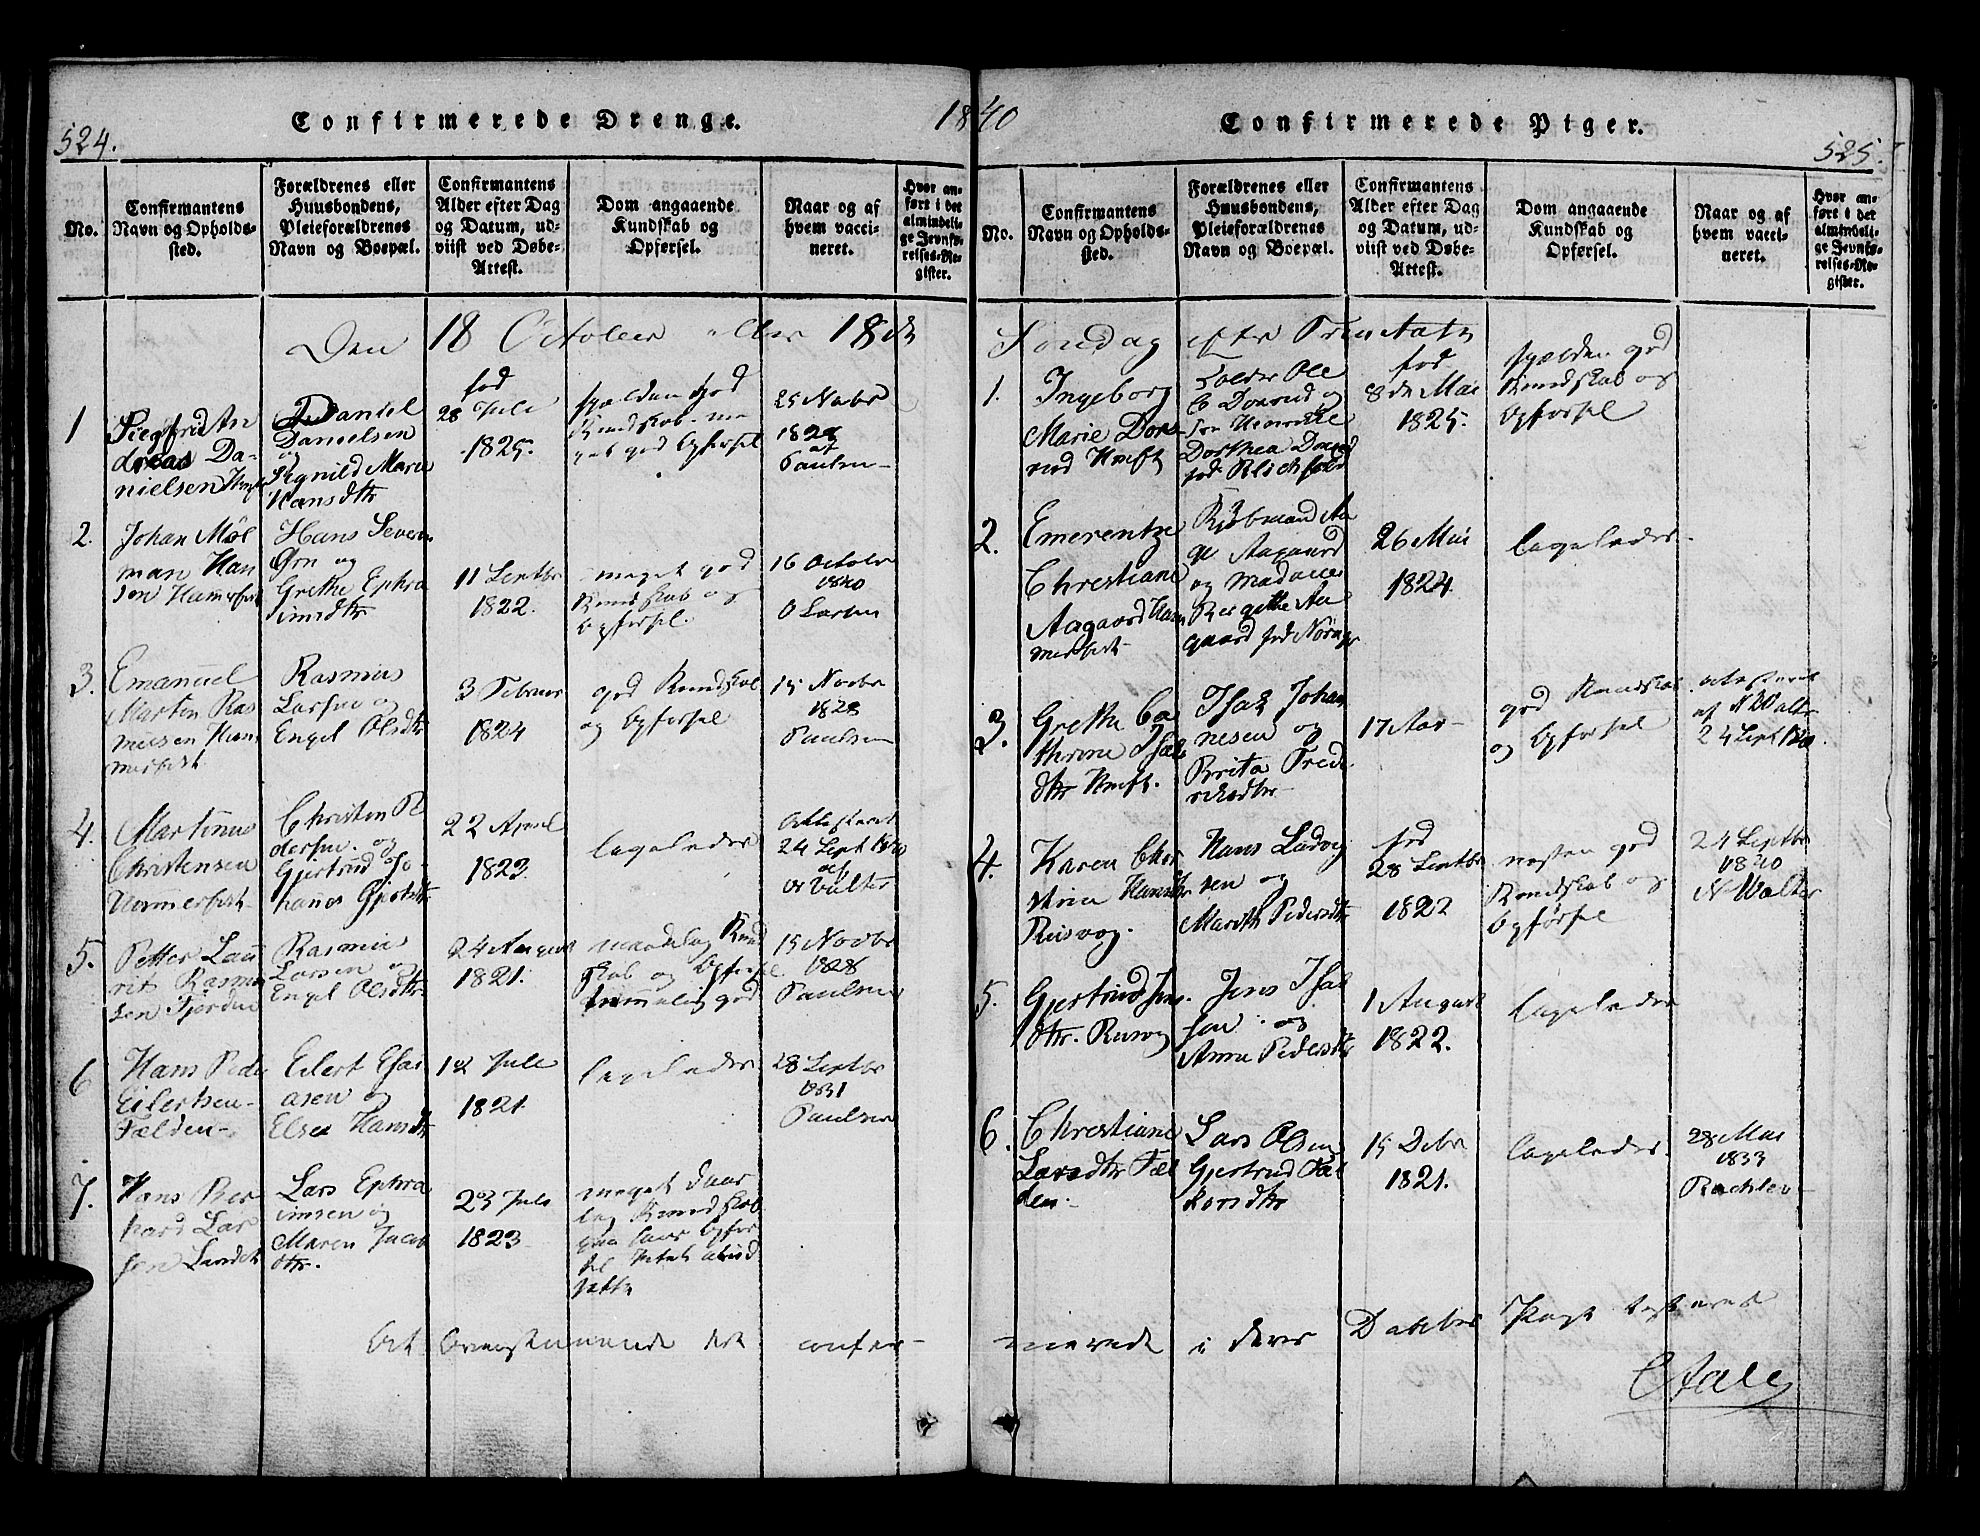 524.
Confirmerede Drenge.
1840
No.
Confirmantens
Navn og Opholds-
sted.
Forældrenes eller
Huusbondens,
Pleieforældrenes
Navn og Boepæl.
Confirmantens
Alder efter Dag
og Datum, ud-
viist ved Døbe-
Attest.
Dom angaaende
Kundskab og
Opførsel.
Naar og af
hvem vacci-
neret.
Hvor an-
ført i det
almindeli-
ge Jevnfø-
relses-Re-
gister.
Den 18 October
1
Siegfrid An
dreas Da-
nielsen
Daniel
Danielsen
og
Signild Marie
Hansdtr
fød
28 Juli
1825.
god
Kundskab
god Opførsel
25 Novbr
af
Paulsen
2.
Johan Møl
man Han
sen Hamerfest
Hans Severin
Ørn og
Grethe Ephra
imsdtr
11 Septbr
1822.
meget god
Kundskab og
Opførsel.
16 October
1840
O Larsen
3.
Emanuel
Martin Ras
mussen Ham
merfest
Rasmus
Larsen og
Engel Olsdtr
3 Februar
1824
god Kundskab
og Opførsel
15 Novbr
1828
Paulsen
4.
Martinus
Christensen
Hammerfest
Christen P
dersen og
Gjertrud Jo-
hannes
22 April
1823.
ligeledes
Attesteret
24 Sept 1840
af
Walter
5.
Petter Lau
rits Rasmus
sen Fjorden
Rasmus
Larsen og
Engel Olsdtr.
24 August
1821.
maadelig Kund
skab og Opførsel
temmelig god
15 Novbr
1828
Paulsen
6
Hans Peder
Eilertsen
Fælden
Eilert Esai
asen og
Elsea Hansdtr
12 Juli
1821.
ligeledes
28 Septbr
1831
Paulsen
7.
Hans Ber
hard Lar
sen
Lars Ephra
imsen og
Maren Jacob
dtr.
23 Juli
1823
meget daar
lig Kundskab
Opfør
sel
At Ovenstaaende ere confir-
Confirmerede Piger.
525.
No.
Confirmantens
Navn og Opholds-
sted.
Forældrenes eller
Huusbondens,
Pleieforældrenes
Navn og Boepæl.
Confirmantens
Alder efter Dag
og Datum, ud-
viist ved Døbe-
Attest.
Dom angaaende
Kundskab og
Opførsel.
Naar og af
hvem vacci-
neret.
Hvor an-
ført i det
almindeli-
ge Jevnfø-
relses-Re-
gister.
Søndag efter Trinitatis
1.
Ingeborg
Marie Dor-
Ole
og
Henrikke
Dorthea
fød
fød
8de Mai
1825.
god
Kundskab og
Opførsel
2.
Emerentze
Christiane
Aagaard Ham
merfest
Kjøbmand Aa
ge Aagaard
og Madame
Bergithe Aa
gaard fød
26 Mai
1824
ligeledes
3.
Grethe Ca
thrine Isak
dtr Hmft.
Isak Johan
nesen og
Brita Fred
riksdtr
17 Aar
god Kundskab
og Opførsel
attesteret
af N Walter
24 Sept 1840.
4.
Karen Chri
stine Hansdtr
Riisvog.
Hans Ludvig
sen og
Marith Pedersdtr
fød
28 Septbr
1822
næsten god
Kundskab og
Opførsel
24 Septbr
1840
N Walter
5.
Gjertrud Jens
dtr. Risvog
Jens Isak
sen og
Anne Pedersdtr
1 August
1822.
ligeledes
6.
Christiane
Larsdtr Fæl
den
Lars Olsen
Gjertrud
15 Debr
1821.
ligeledes
28 Mai
1833
merede i deres Daabes Pagt